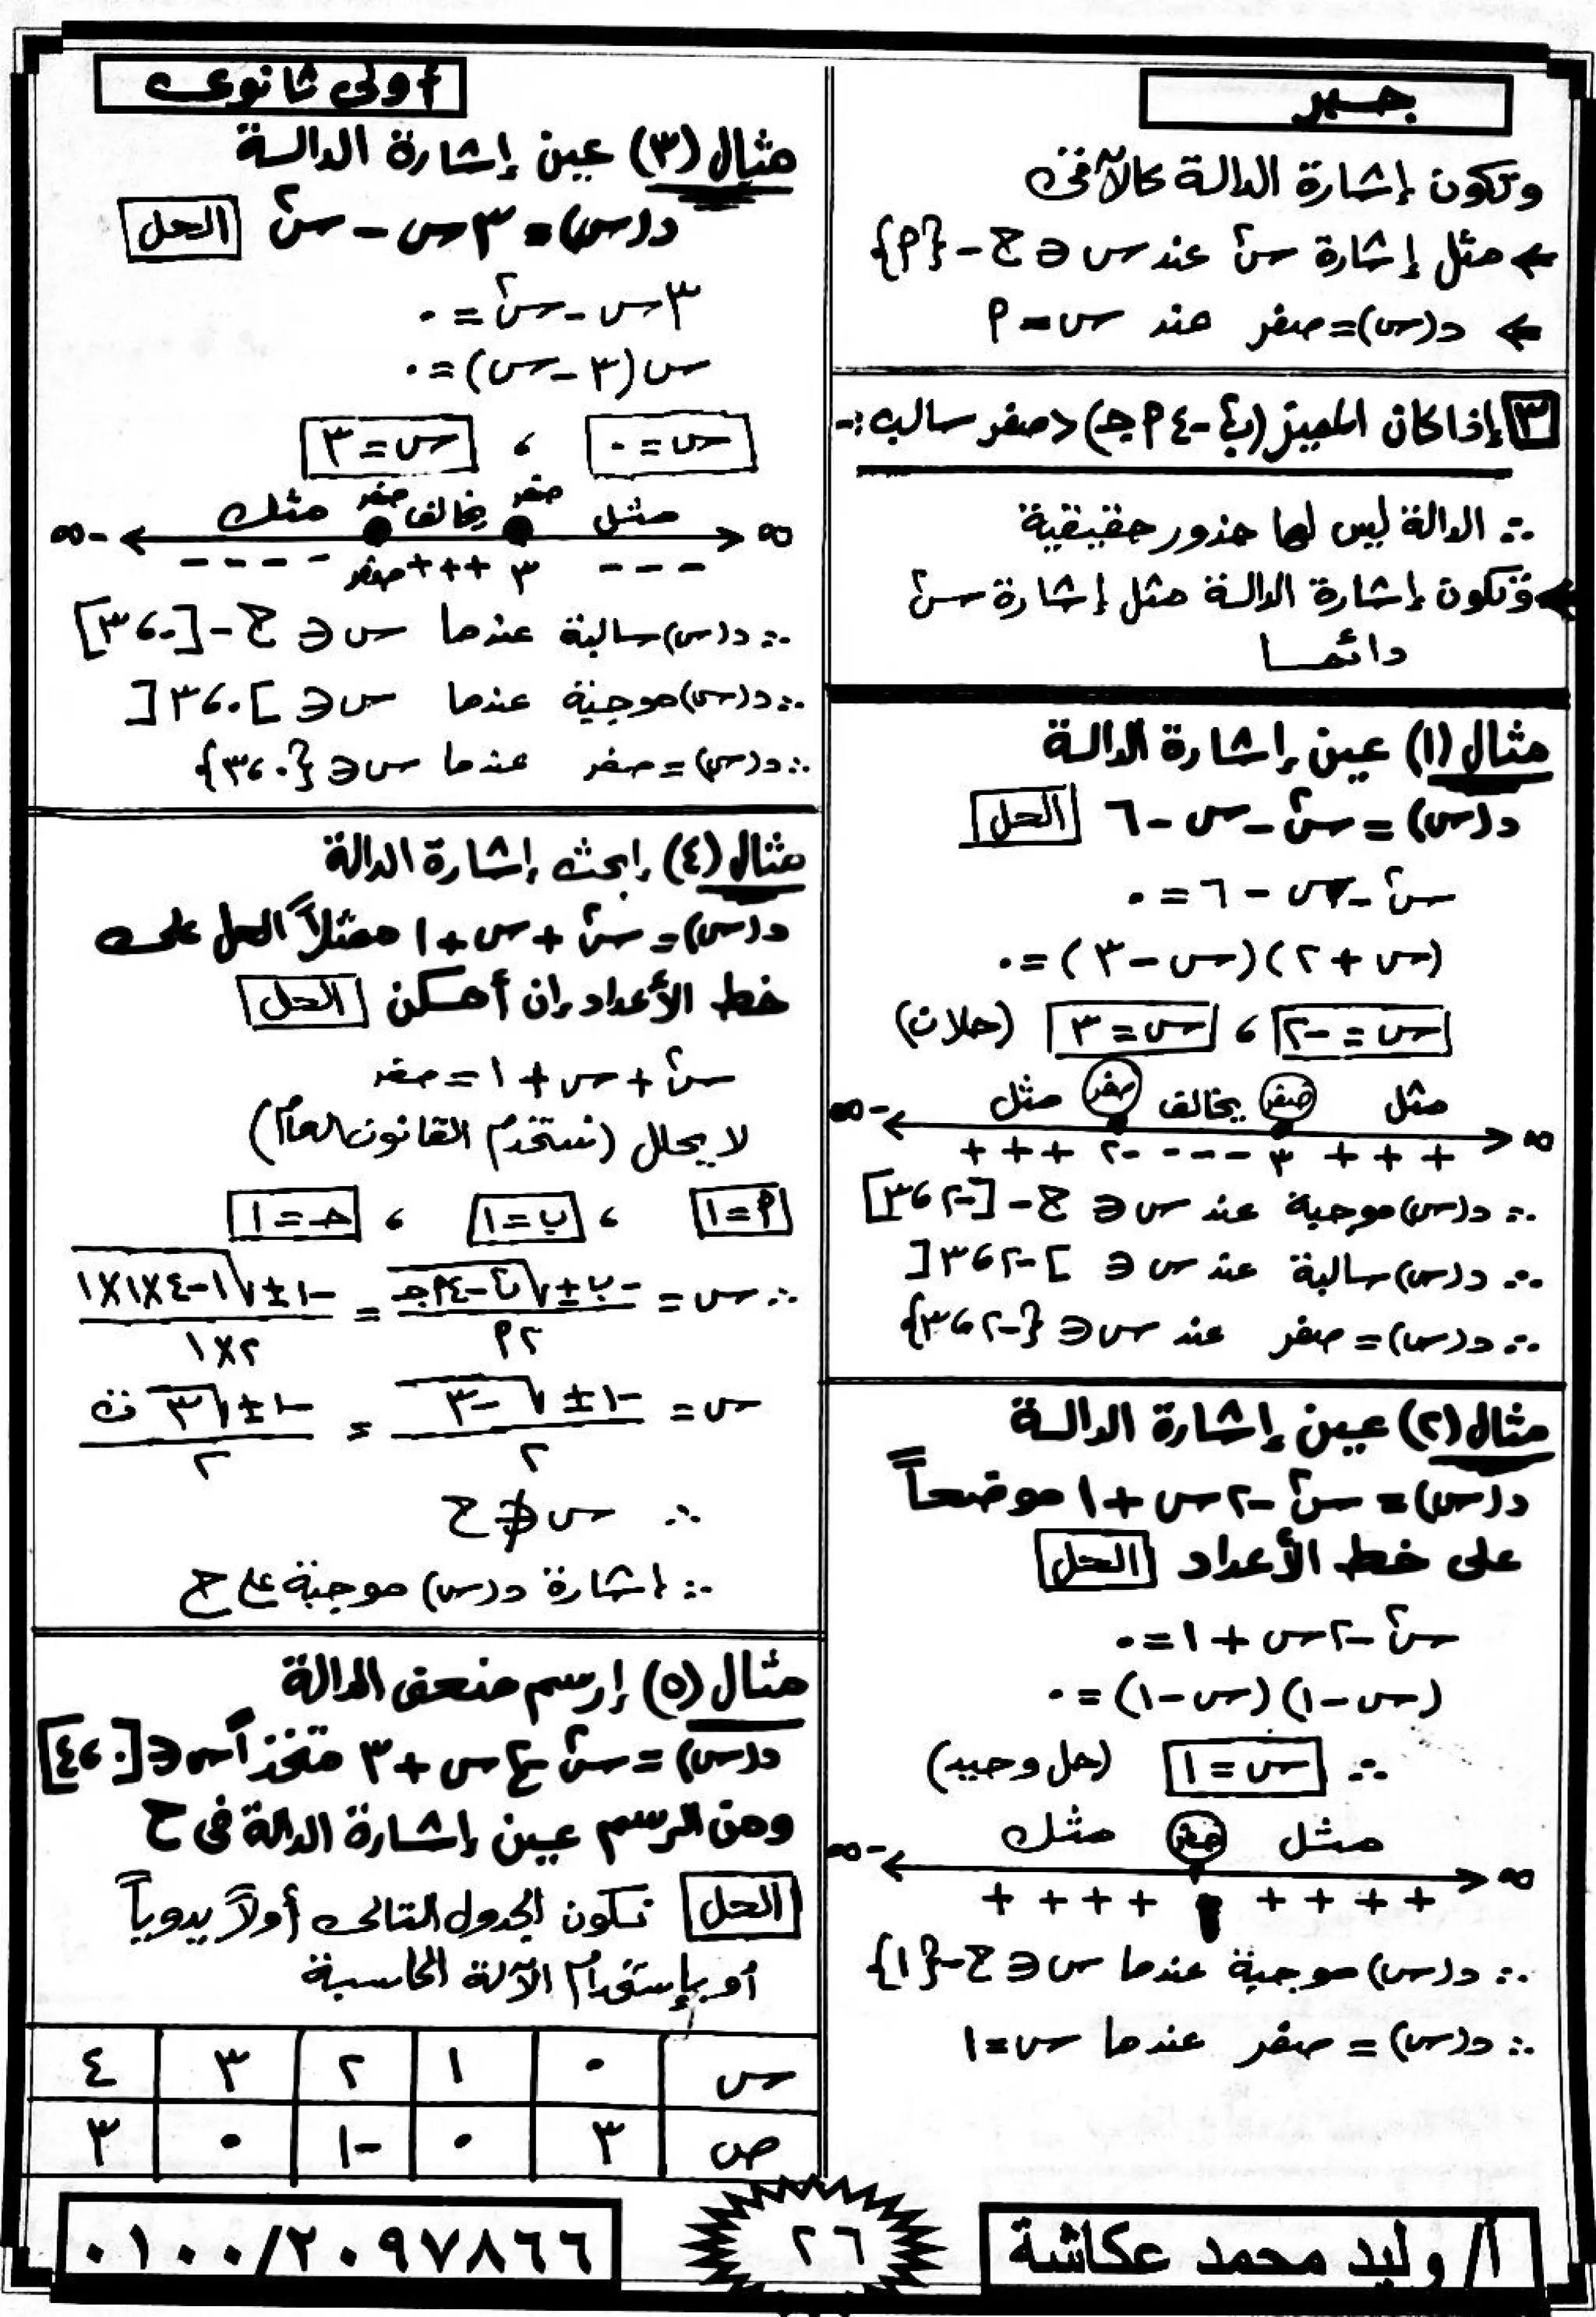 جبر
وتكون إشارة الدالة كالآتى
← مثل إشارة س٢ عند س ∈ ح - {٢}
← د(س) = صفر عند س = ٢
٣ إذا كان المميز (ب٢ - ٤ ٢ جـ) > صفر سالب :-
∴ الدالة ليس لها جذور حقيقية
← وتكون إشارة الدالة مثل إشارة س٢
دائمـا
مثال (١) عين إشارة الدالة
د(س) = س٢ - س - ٦ الحل
س٢ - س - ٦ = ٠
(س + ٢) (س - ٣) = ٠
س = -٢ ، س = ٣ (حلان)
∞ مثل صفر يخالف صفر مثل -∞
+ + + -٢ - - - - ٣ + + +
∴ د(س) موجبة عند س ∈ ح - [-٢ ، ٣]
∴ د(س) سالبة عند س ∈ ]-٢ ، ٣[
∴ د(س) = صفر عند س ∈ {-٢ ، ٣}
مثال (٢) عين إشارة الدالة
د(س) = س٢ - ٢س + ١ موضحاً
على خط الأعداد الحل
س٢ - ٢س + ١ = ٠
(س - ١) (س - ١) = ٠
∴ س = ١ (حل وحيد)
∞ مثل صفر مثل -∞
+ + + + ١ + + + +
∴ د(س) موجبة عندما س ∈ ح - {١}
∴ د(س) = صفر عندما س = ١
أولى ثانوى
مثال (٣) عين إشارة الدالة
د(س) = ٣س - س٢ الحل
٣س - س٢ = ٠
س (٣ - س) = ٠
س = ٠ ، س = ٣
∞ مثل صفر يخالف صفر مثل -∞
- - - - صفر + + + ٣ - - -
∴ د(س) سالبة عندما س ∈ ح - [٠ ، ٣]
∴ د(س) موجبة عندما س ∈ ]٠ ، ٣[
∴ د(س) = صفر عندما س ∈ {٠ ، ٣}
مثال (٤) إبحث إشارة الدالة
د(س) = س٢ + س + ١ ممثلاً الحل على
خط الأعداد إن أمكن الحل
س٢ + س + ١ = صفر
لا يحلل (نستخدم القانون العام)
٢ = ١ ، ب = ١ ، جـ = ١
∴ س = (-ب ± √(ب٢ - ٤ ٢ جـ)) / ٢ ٢ = (-١ ± √(١ - ٤×١×١)) / ٢×١
س = (-١ ± √-٣) / ٢ = (-١ ± √٣ ت) / ٢
∴ س ∉ ح
∴ إشارة د(س) موجبة على ح
مثال (٥) إرسم منحنى الدالة
د(س) = س٢ - ٤س + ٣ متخذاً س ∈ [٠ ، ٤]
ومن الرسم عين إشارة الدالة فى ح
الحل نكون الجدول التالى أولاً يدوياً
أو بإستخدام الآلة الحاسبة
س ٠ ١ ٢ ٣ ٤
ص ٣ ٠ -١ ٠ ٣
أ/ وليد محمد عكاشة
٢٦
٠١٠٠/٢٠٩٧٨٦٦